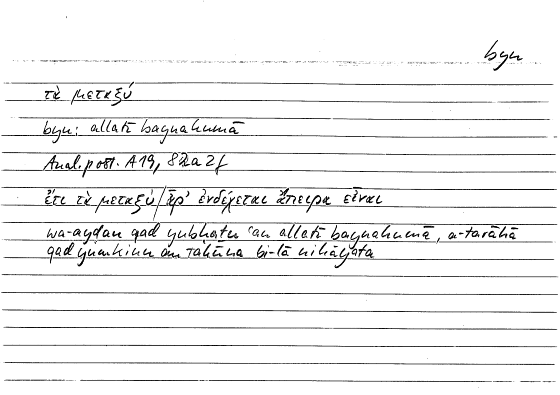 byn
τὰ μεταξύ
byn: allatī baynahumā
Anal. post. A 19, 82a 2f
ἔτι τὰ μεταξύ/ἆρ' ἐνδέχεται ἄπειρα εἶναι
wa-ayḍan qad yubḥatu ʿan allatī baynahumā, a-tarāhā
qad yumkinu an takūna bi-lā nihāyata